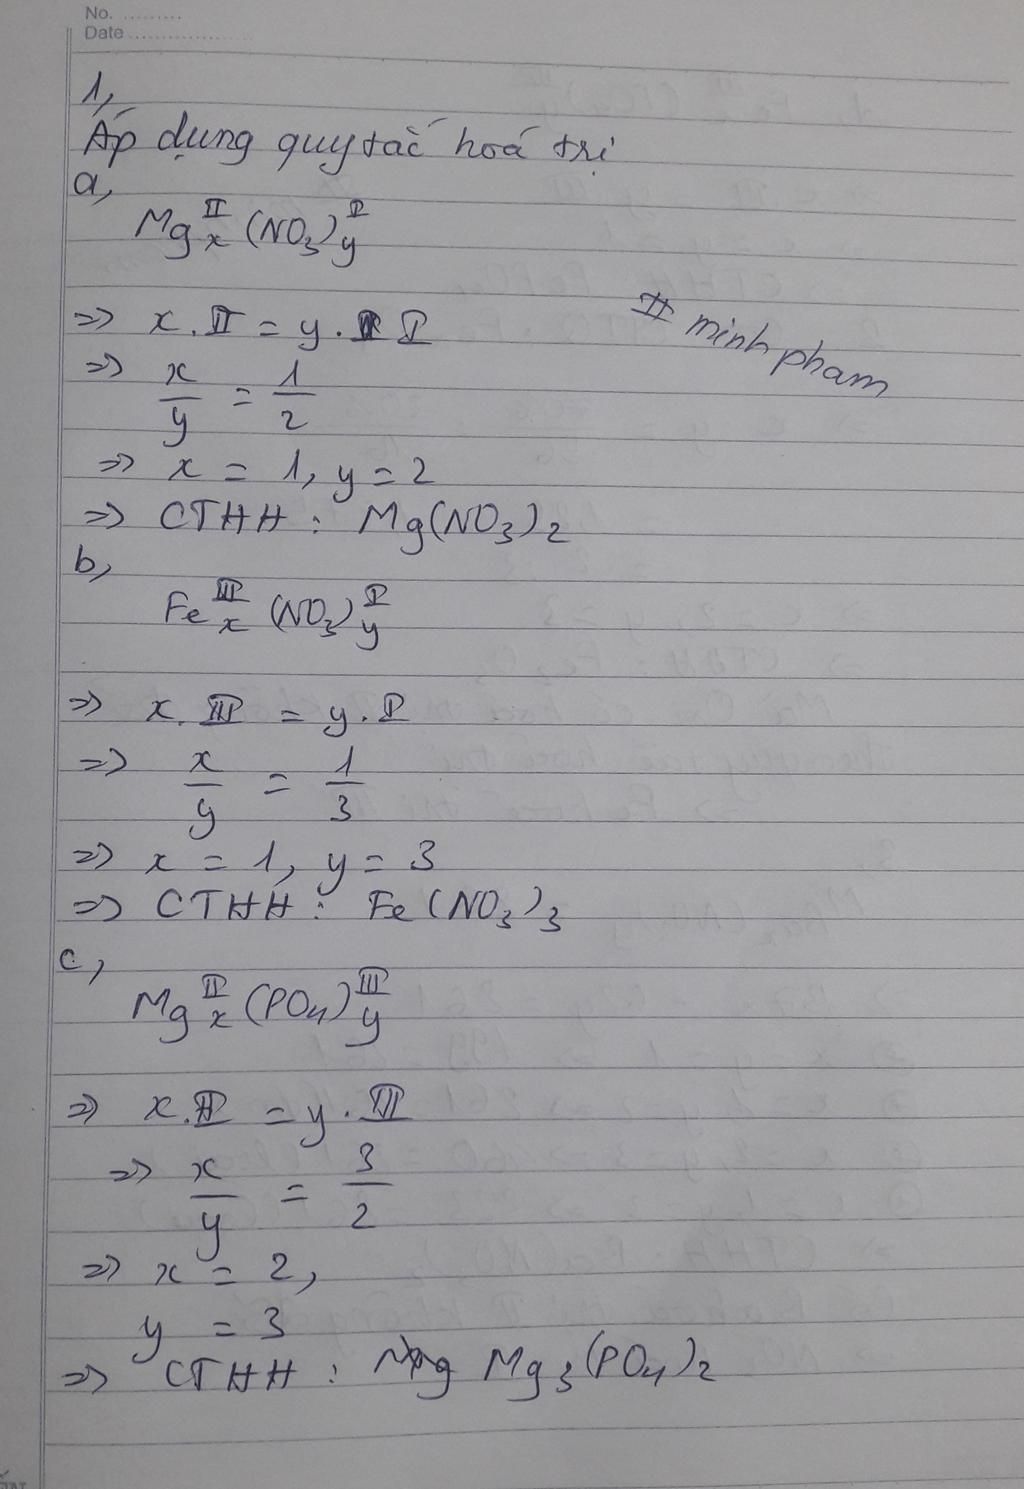 No. .........
Date .....................
1,
Áp dụng quy tắc hoá trị
a,
Mg^II_x (NO₃)^I_y
=> x . II = y . I
# minh pham
=> x/y = 1/2
=> x = 1, y = 2
=> CTHH : Mg(NO₃)₂
b,
Fe^III_x (NO₃)^I_y
=> x . III = y . I
=> x/y = 1/3
=> x = 1, y = 3
=> CTHH : Fe(NO₃)₃
c,
Mg^II_x (PO₄)^III_y
=> x . II = y . III
=> x/y = 3/2
=> x = 2,
y = 3
=> CTHH : Mg₃(PO₄)₂